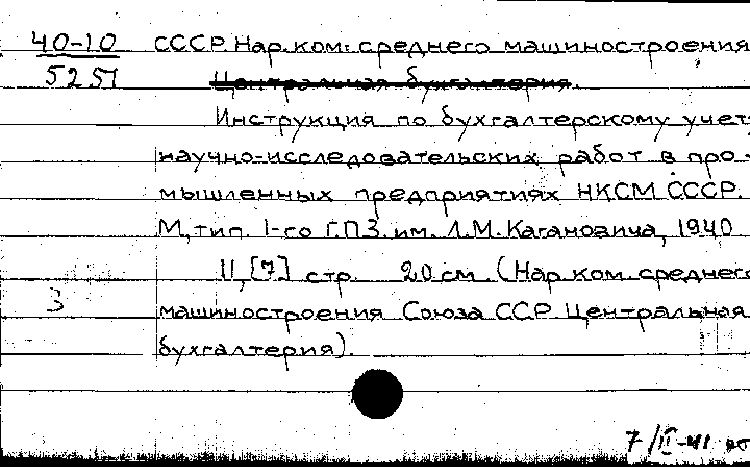 40-10 СССР. Нар. ком. среднего машиностроения
5251 Центральная бухгалтерия.
Инструкция по бухгалтерскому учет
научно-исследовательских работ в про-
мышленных предприятиях НКСМ СССР.
М, тип. 1-го Г.П.З. им. Л.М. Кагановича, 1940
11, [7] стр. 20 см. (Нар. ком. среднего
машиностроения Союза ССР. Центральная
бухгалтерия).
7/II-41